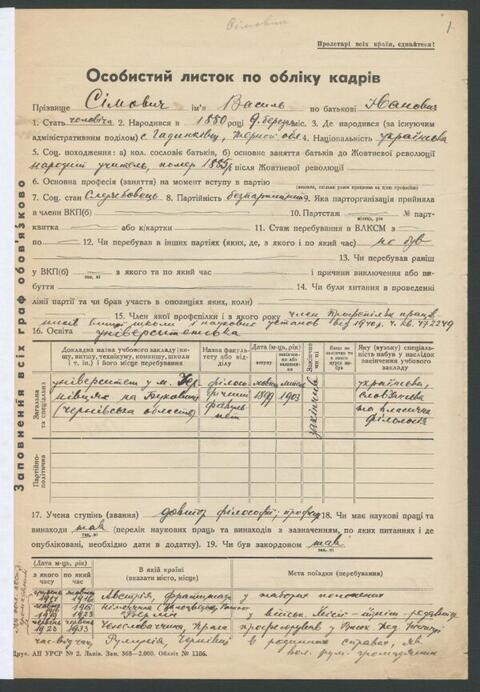 Сімович
1.
Пролетарі всіх країн, єднайтеся!
Особистий листок по обліку кадрів
Прізвище Сімович ім'я Василь по батькові Іванович
1. Стать чоловіча 2. Народився в 1880 році 9. березня міс. 3. Де народився (за існуючим
адміністративним поділом) с. Гадинківці, Терноп. обл. 4. Національність українська
5. Соц. походження: а) кол. сословіє батьків, б) основне заняття батьків до Жовтневої революції
народній учитель, помер 1885 р. після Жовтневої революції
6. Основна професія (заняття) на момент вступу в партію
7. Соц. стан Службовець 8. Партійність безпартійний Яка парторганізація прийняла
в члени ВКП(б) 10. Партстаж № парт-
місяць, рік
квитка або к/картки 11. Стаж перебування в ВЛКСМ з
по 12. Чи перебував в інших партіях (яких, де, з якого і по який час) не був
13. Чи перебував раніш
у ВКП(б) з якого та по який час і причини виключення або ви-
так, ні
буття 14. Чи були хитання в проведенні
лінії партії та чи брав участь в опозиціях яких, коли)
15. Член якої профспілки і з якого року член Профспілки праців-
ників вищої школи і наукових установ від 1940 р. ч. кв. 472249
16. Освіта університетська
Докладна назва учбового закладу (ви-
шу, втишу, технікуму, комвишу, школи
і т. ін.) і його місце перебування
Назва факуль-
тету або від-
ділу
Дата (м-ць, рік)
вступу
Закінчив
так, ні
Яку (вузьку) спеціаль-
ність набув у наслідок
закінчення учбового
закладу
Загальна
та спеціальна
університет у м. Чер-
нівцях на Буковині
(чернівська область)
філосо-
фічний
факуль-
тет
1899
1903
закінчив
українська,
слов'янська
та класична
філологія
Партійно-
політична
17. Учена ступінь (звання) доктор філософії, професор 18. Чи має наукові праці та
винаходи має (перелік наукових праць та винаходів з зазначенням, по яких питаннях і де
так, ні
опубліковані, необхідно дати в додатку). 19. Чи був закордоном так
так, ні
Дата (м-ць, рік)
з якого
часу
по який
час
В якій країні
(вказати місто, місце)
Мета поїздки (перебування)
Австрія,
у таборах полонених
1923 1933 Чехословаччина, Прага
професорував у Висок. Пед. Інституті
час-від час. Румунія, Чернівці
в родинних справах, як
пол. рум. громадянин
Друк. АН УРСР № 2. Львів. Зам. 368—2.000. Обліг. № 1186.
Заповнення всіх граф обов'язкове